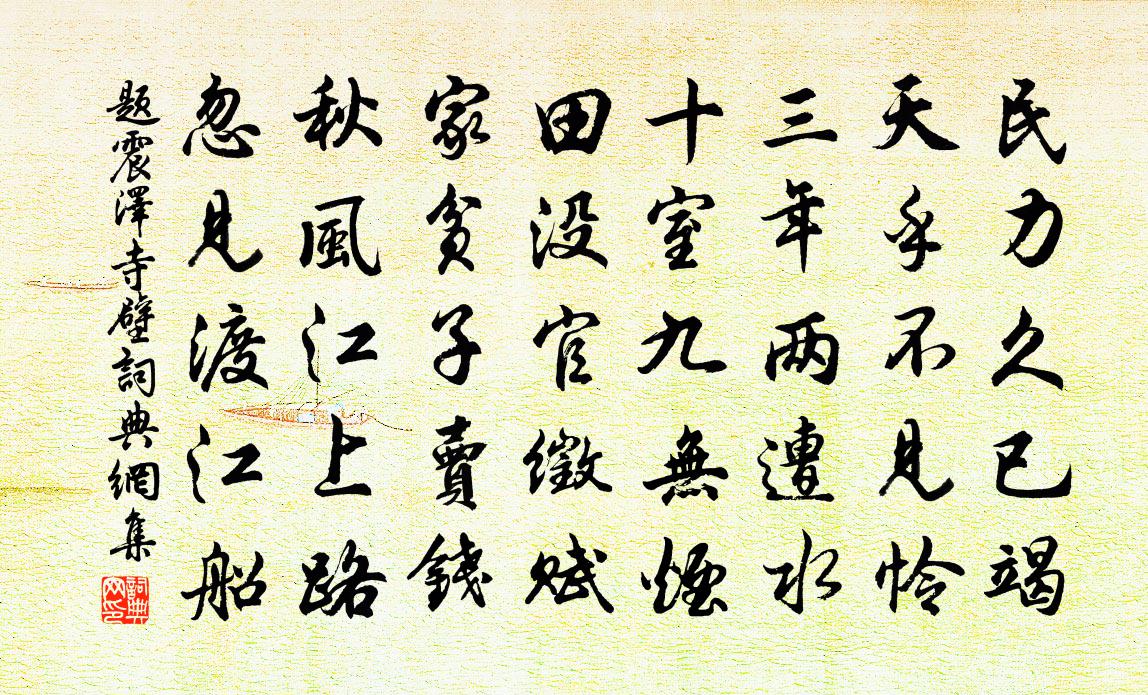 民力久已竭
天乎不見怜
三年两遭水
十室九無煙
田没官徵賦
家貧子賣錢
秋風江上路
忽見渡江船
題震澤寺壁詞典網集
詞典网印